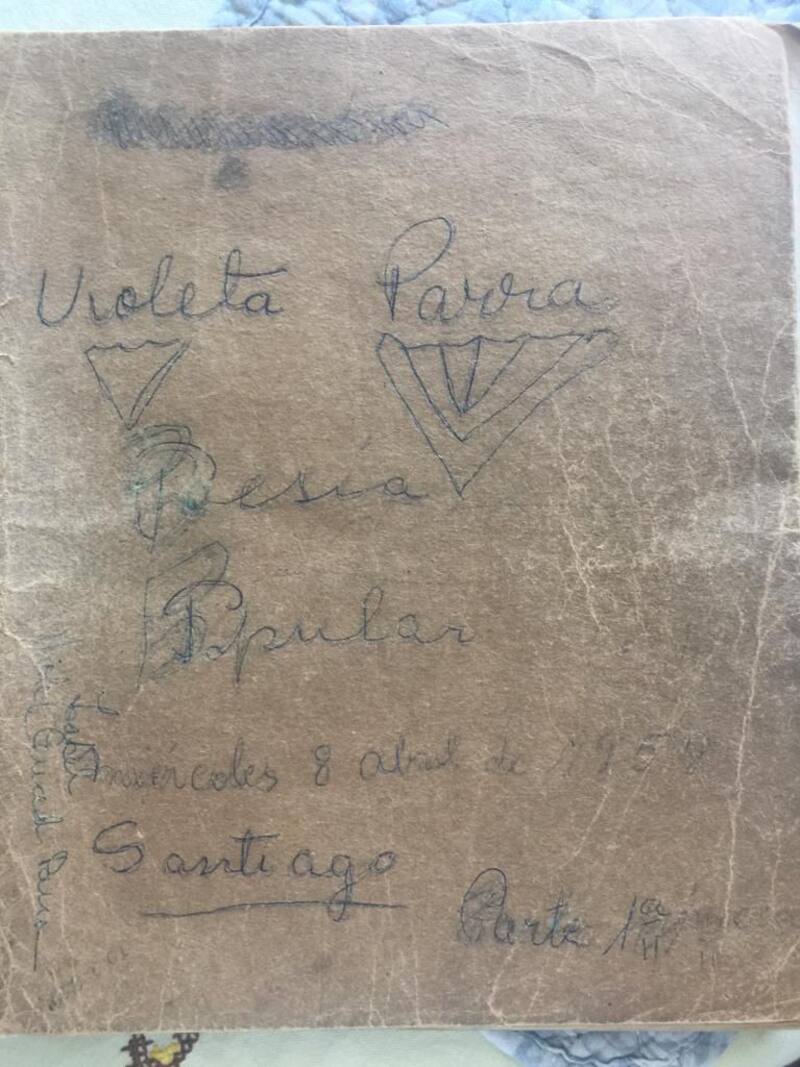 Violeta Parra
Poesía
Popular
miércoles 8 abril de 195
Santiago
Parte 1ª